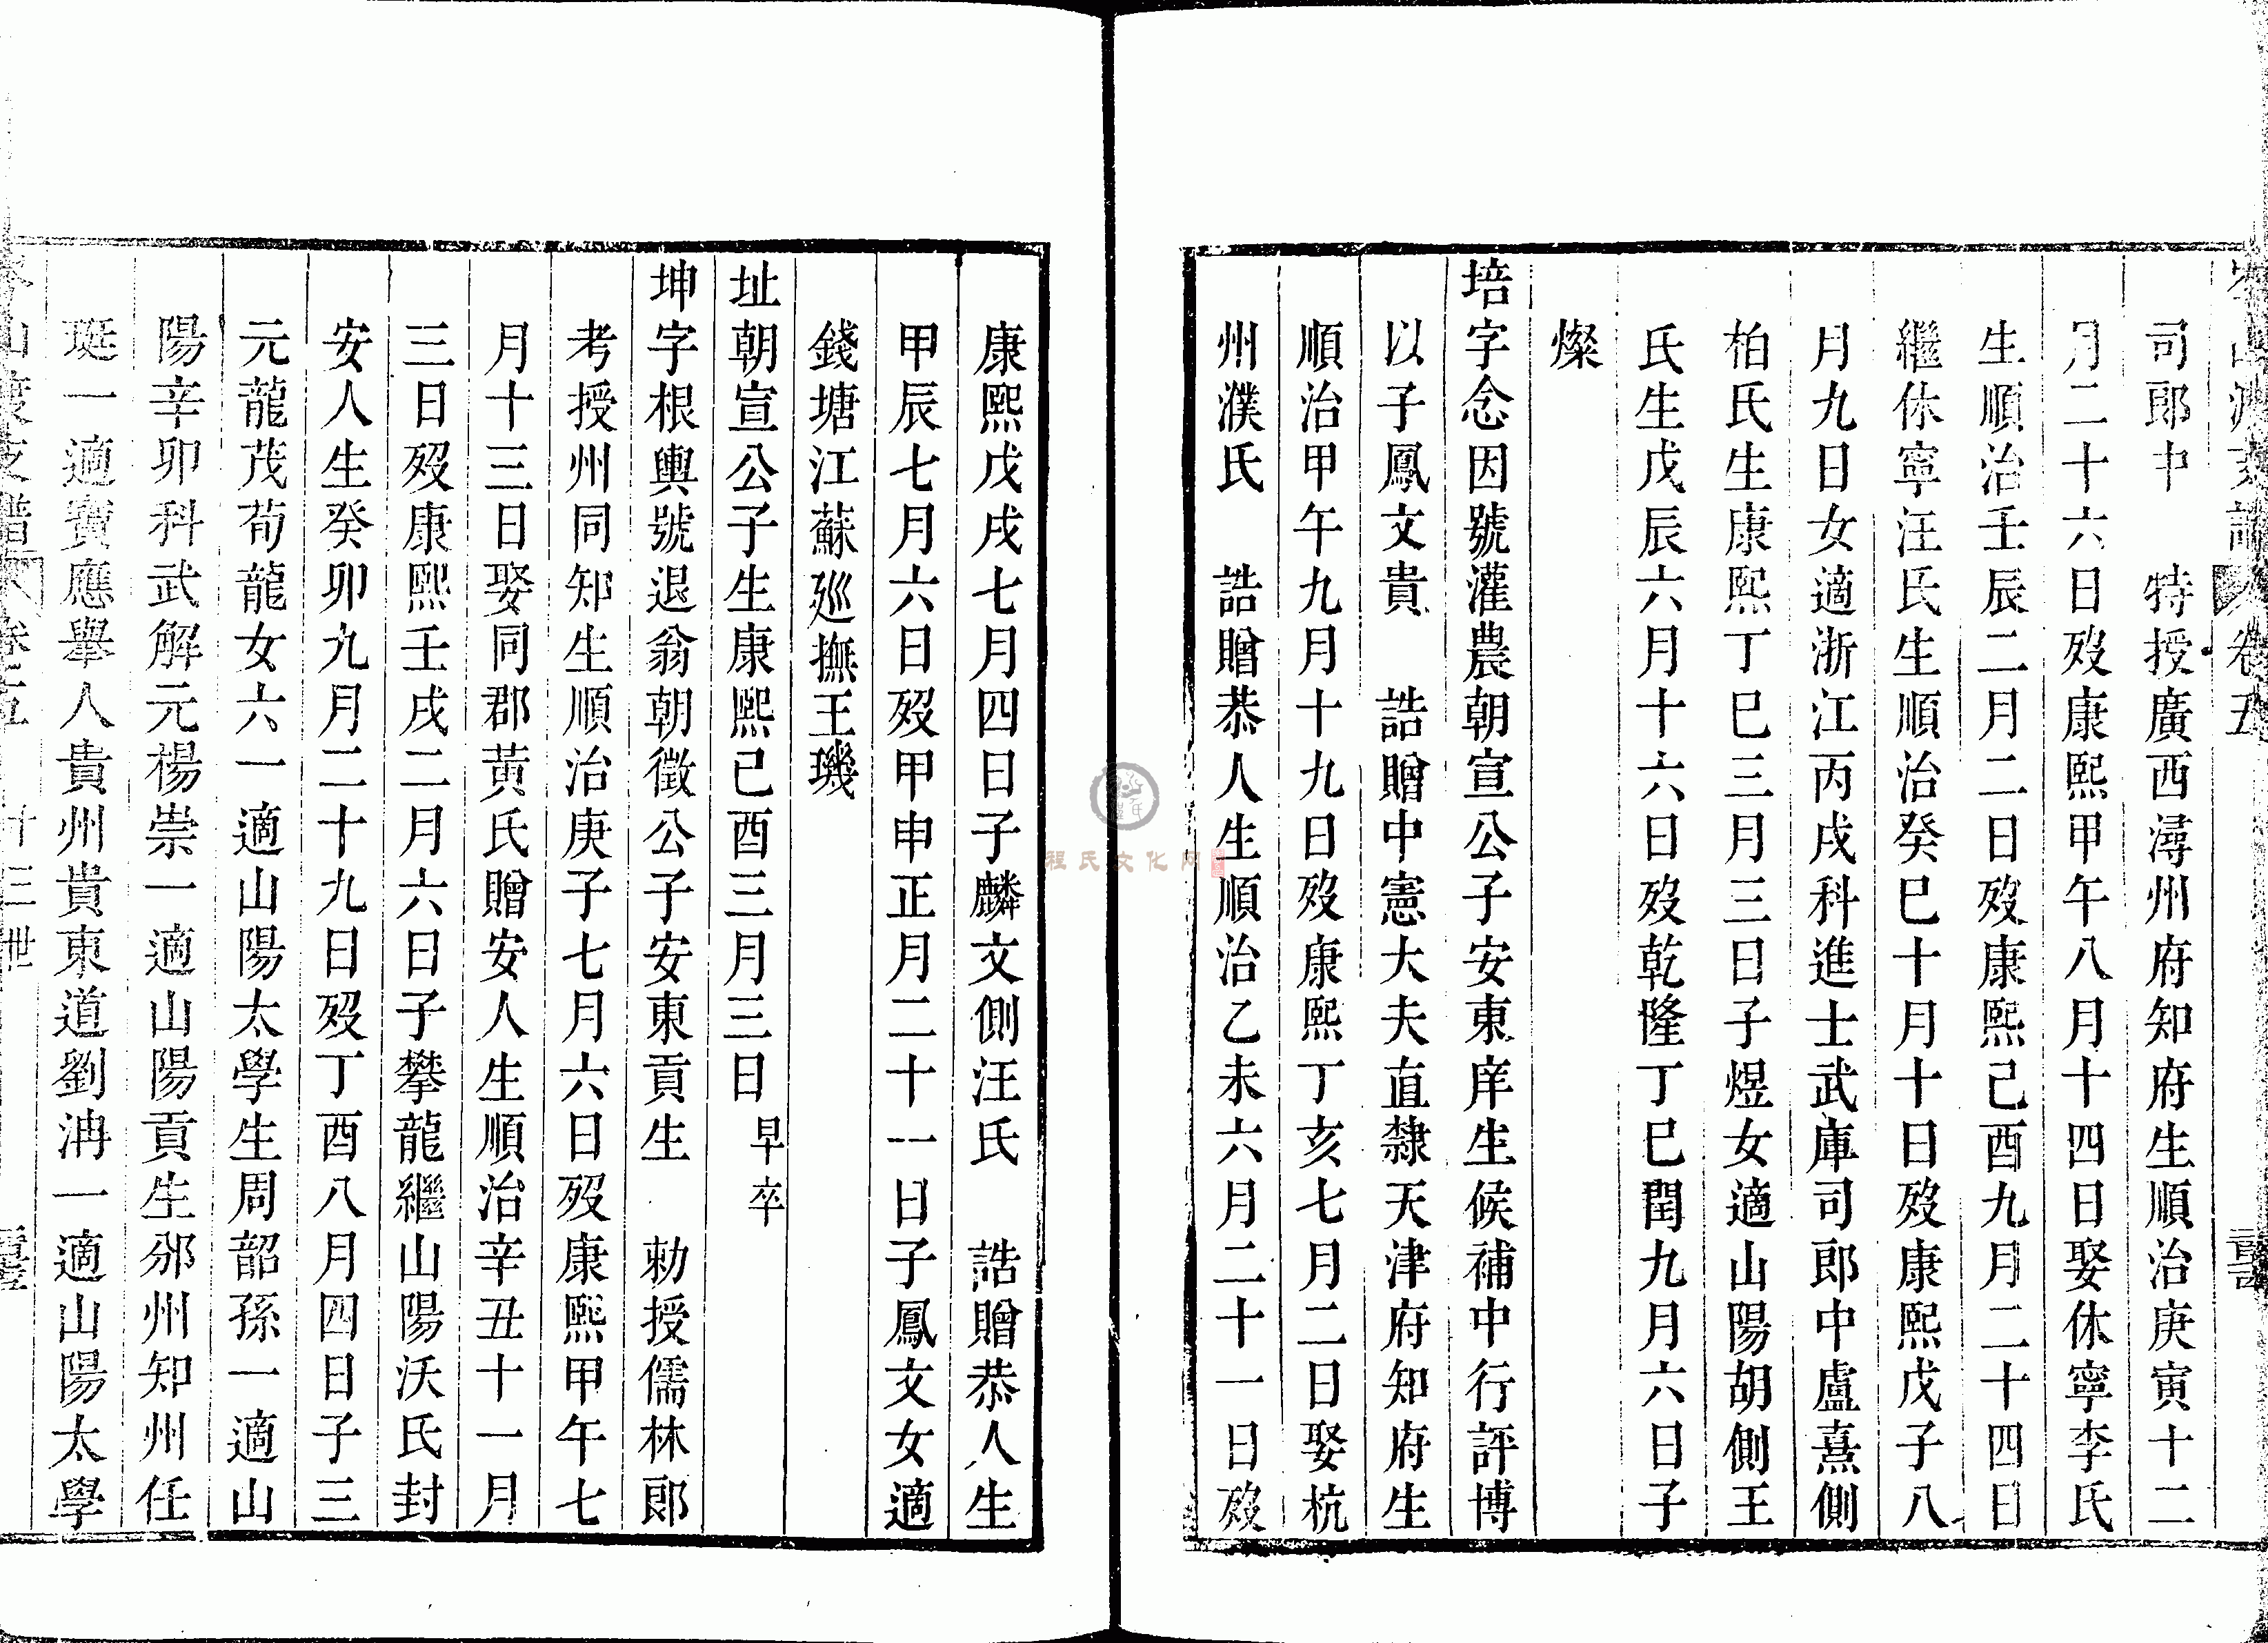 岑山渡支譜 卷五
司郎中　特授廣西潯州府知府生順治庚寅十二
月二十六日歿康熙甲午八月十四日娶休寧李氏
生順治壬辰二月二日歿康熙己酉九月二十四日
繼休寧汪氏生順治癸巳十月十日歿康熙戊子八
月九日女適浙江丙戌科進士武庫司郎中盧熹側
柏氏生康熙丁巳三月三日子煜女適山陽胡側王
氏生戊辰六月十六日歿乾隆丁巳閏九月六日子
燦
培字念因號灌農朝宣公子安東庠生候補中行評博
以子鳳文貴　誥贈中憲大夫直隸天津府知府生
順治甲午九月十九日歿康熙丁亥七月二日娶杭
州濮氏　誥贈恭人生順治乙未六月二十一日歿
康熙戊戌七月四日子麟文側汪氏　誥贈恭人生
甲辰七月六日歿甲申正月二十一日子鳳文女適
錢塘江蘇巡撫王璣
址朝宣公子生康熙己酉三月三日早卒
坤字根輿號退翁朝徵公子安東貢生　勅授儒林郎
考授州同知生順治庚子七月六日歿康熙甲午七
月十三日娶同郡黃氏贈安人生順治辛丑十一月
三日歿康熙壬戌二月六日子攀龍繼山陽沃氏封
安人生癸卯九月二十九日歿丁酉八月四日子三
元龍茂荀龍女六一適山陽太學生周韶孫一適山
陽辛卯科武解元楊崇一適山陽貢生邠州知州任
珽一適寶應舉人貴州貴東道劉泋一適山陽太學
山渡支譜 卷五 十三世
程氏文化网